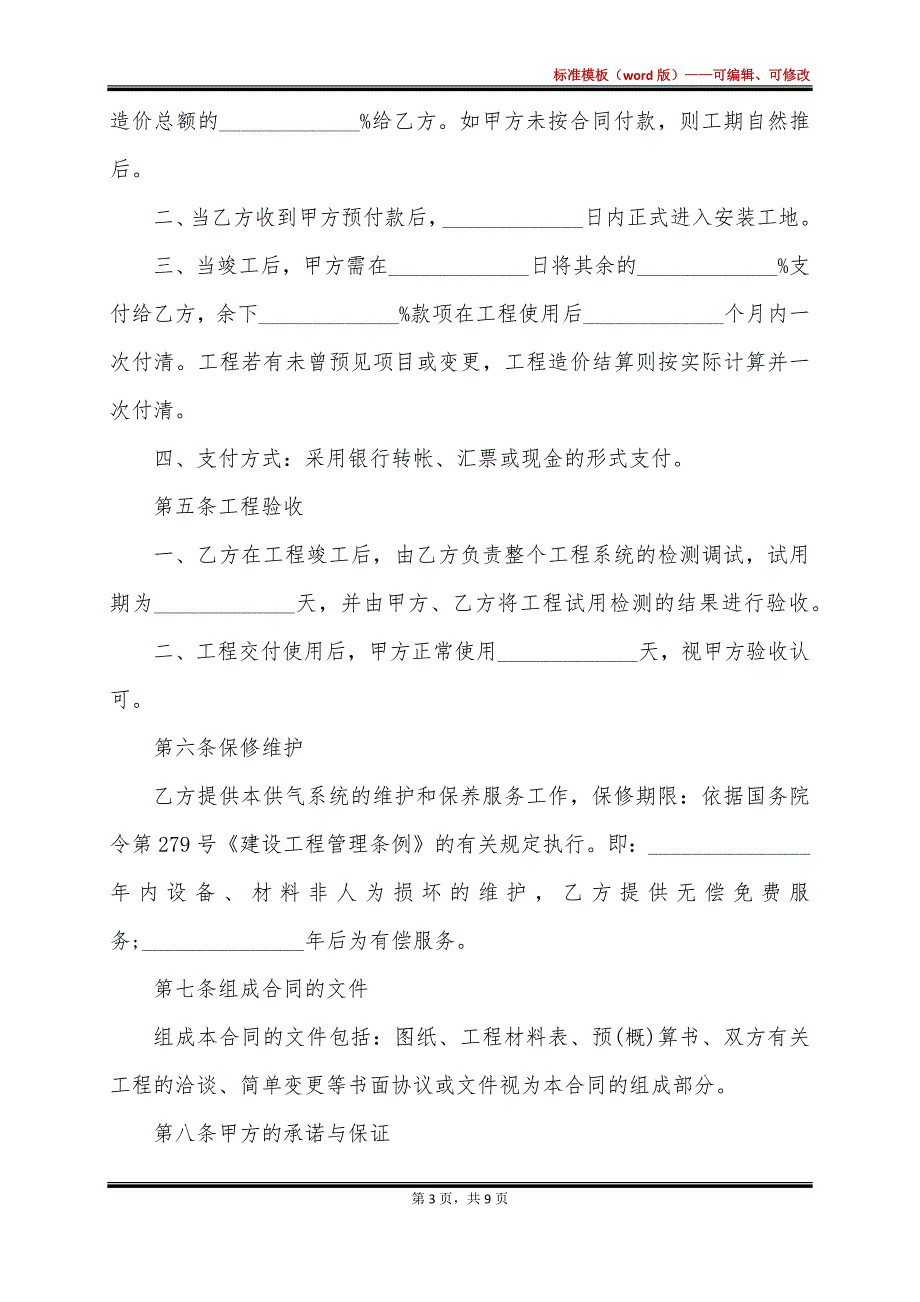 标准模板（word 版）——可编辑、可修改
造价总额的_____________%给乙方。如甲方未按合同付款，则工期自然推
后。
二、当乙方收到甲方预付款后，_____________日内正式进入安装工地。
三、当竣工后，甲方需在_____________日将其余的_____________%支
付给乙方，余下_____________%款项在工程使用后_____________个月内一
次付清。工程若有未曾预见项目或变更，工程造价结算则按实际计算并一
次付清。
四、支付方式：采用银行转帐、汇票或现金的形式支付。
第五条工程验收
一、乙方在工程竣工后，由乙方负责整个工程系统的检测调试，试用
期为_____________天，并由甲方、乙方将工程试用检测的结果进行验收。
二、工程交付使用后，甲方正常使用_____________天，视甲方验收认
可。
第六条保修维护
乙方提供本供气系统的维护和保养服务工作，保修期限：依据国务院
令第 279 号《建设工程管理条例》的有关规定执行。即：_______________
年内设备、材料非人为损坏的维护，乙方提供无偿免费服
务;_______________年后为有偿服务。
第七条组成合同的文件
组成本合同的文件包括：图纸、工程材料表、预(概)算书、双方有关
工程的洽谈、简单变更等书面协议或文件视为本合同的组成部分。
第八条甲方的承诺与保证
第 3 页，共 9 页